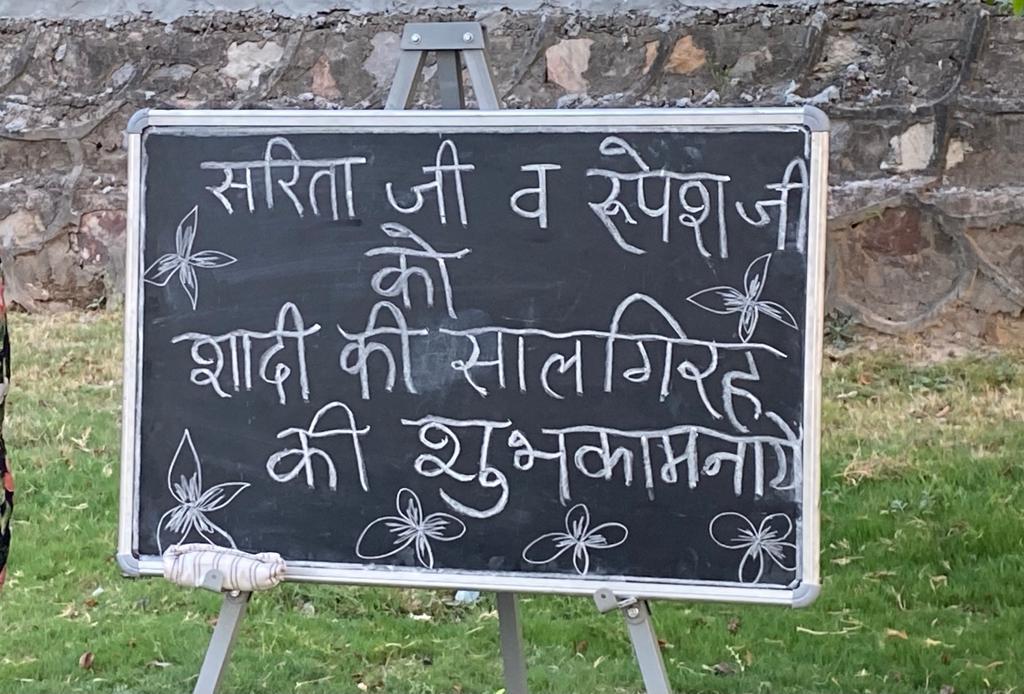 सरिता जी व रूपेश जी
को
शादी की सालगिरह
की शुभकामनाये